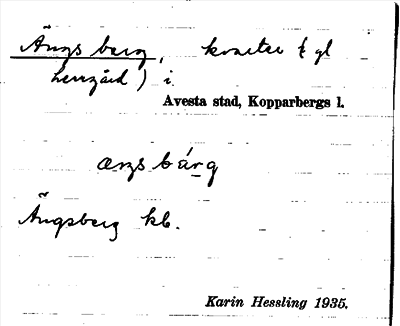 Ängsberg, kvarter (gl
herrgård) i
Avesta stad, Kopparbergs l.
æŋsbárg
Ängsberg kb.
Karin Hessling 1935.